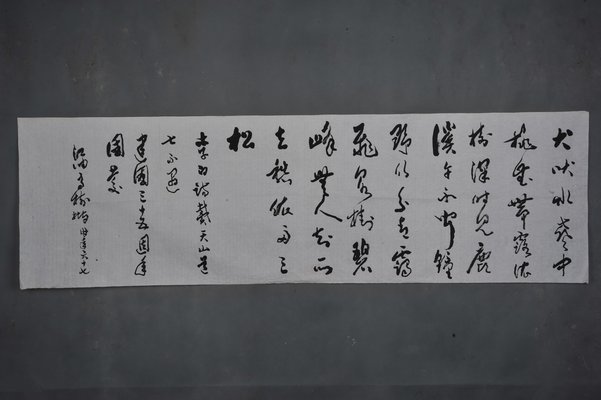 犬吠水聲中
桃花帶露濃
樹深時見鹿
溪午不聞鐘
野竹分青靄
飛泉掛碧
峰無人知所
去愁依兩三
松
李白訪戴天山道
士不遇
建國三十五周年
國慶
時年六十七